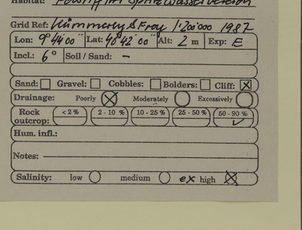 Habitat:
Grid Ref: Kümmerly & Frey 1:200'000 1987
Lon: 9°44'00" Lat: 40°42'00" Alt: 2 m Exp: E
Incl.: 6° Soil / Sand: –
Sand: Gravel: Cobbles: Bolders: Cliff:
Drainage: Poorly Moderately Excessively
Rock outcrop: <2% 2 - 10% 10 - 25% 25 - 50% 50 - 90%
Hum. infl.:
Notes:
Salinity: low medium ex high